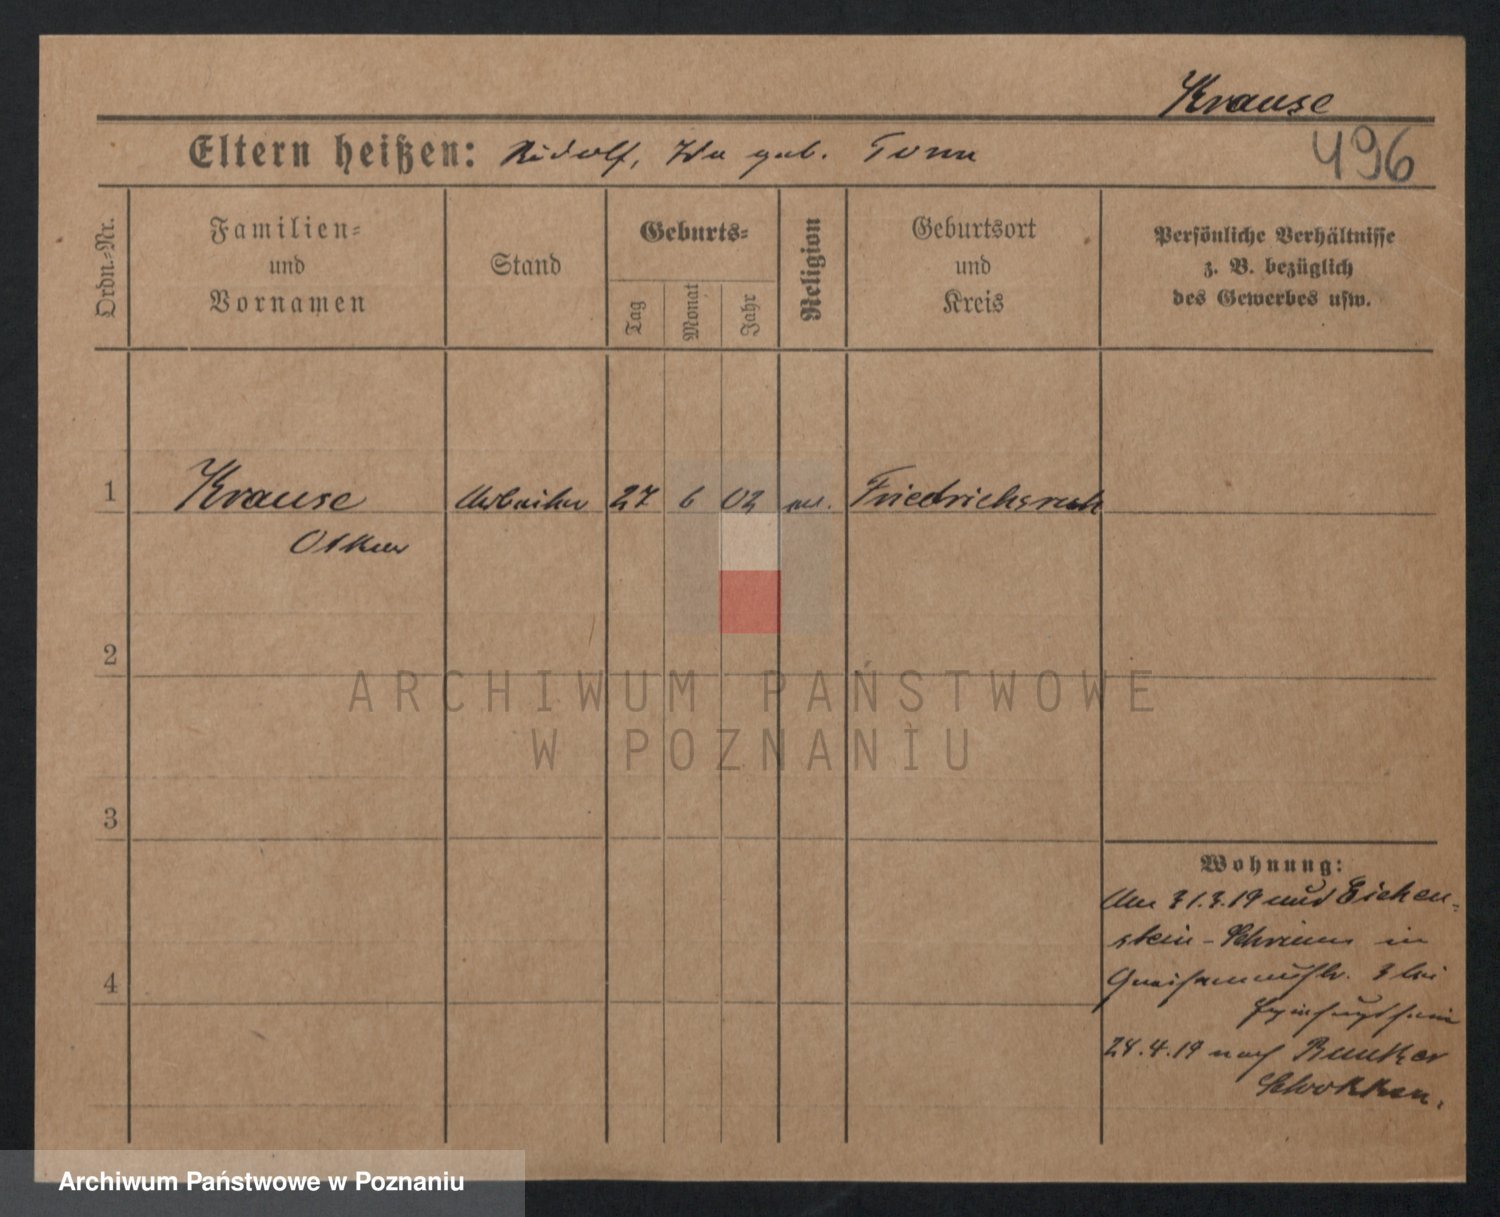 Krause
Eltern heißen: Rudolf, Ida geb. Tonn
496
Ordn.-Nr.
Familien-
und
Vornamen
Stand
Geburts-
Tag
Monat
Jahr
Religion
Geburtsort
und
Kreis
Persönliche Verhältnisse
z. B. bezüglich
des Gewerbes usw.
1
Krause
Oskar
Arbeiter
27
6
02
ev.
Friedrichsruh
2
3
4
Wohnung:
Am 31.3.19 aus Eichen-
stein-Schrimm in
3 bei
28.4.19 nach
Schokken.
ARCHIWUM PAŃSTWOWE
W POZNANIU
Archiwum Państwowe w Poznaniu